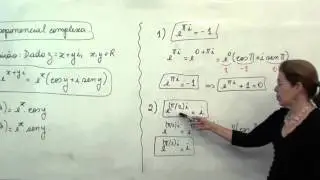 exponencial complexa
Dado z=x+yi, x,y∈ℝ
e^{x+yi} = e^x(cos y + i sen y)
= e^x · cos y
= e^x · sen y
1) e^{πi} = -1
e^{πi} = e^{0+πi} = e^0(cos π + i sen π)
1 -1
e^{πi} = -1 ⇒ e^{πi} + 1 = 0
2) e^{(π/2)i} = i
e^{(π/2)i} =
e^{(π/2)i} = i